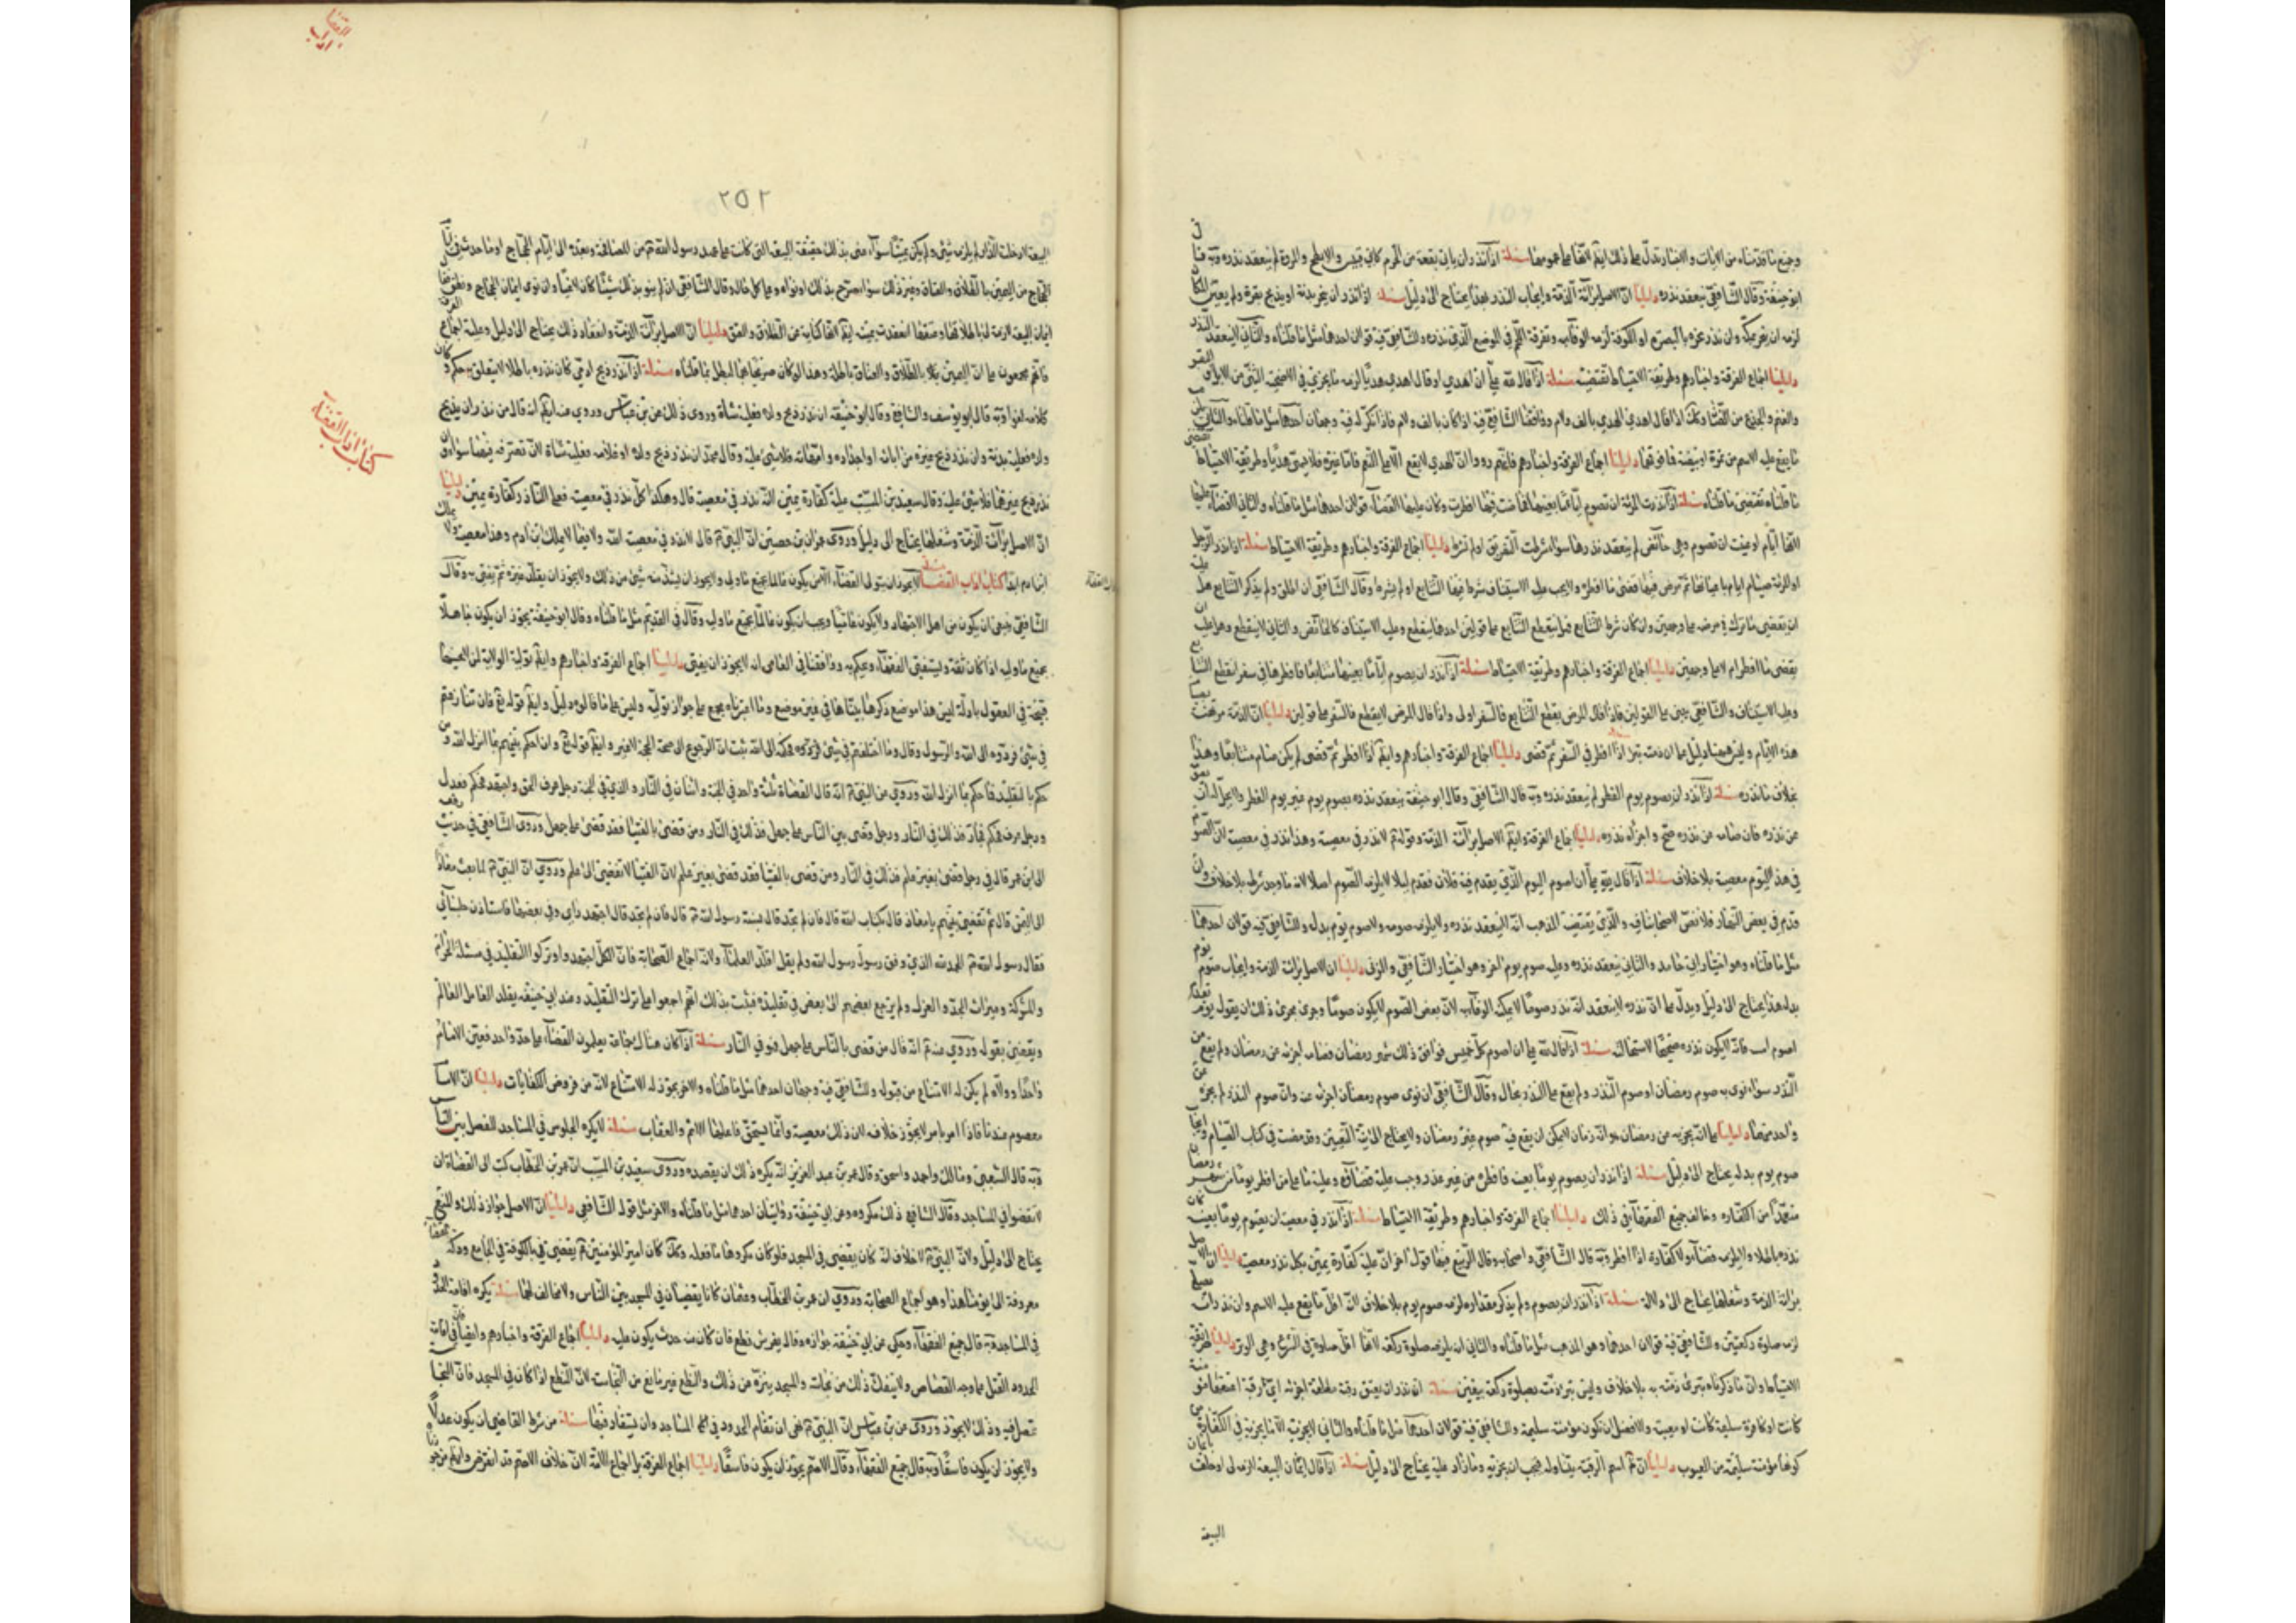 وجميع ما قدمناه من الايات والاخبار تدل على ذلك ايضا لانها على عمومها مسئلة اذا نذر ان ياتي بقعة من الحرم كابي قبيس والابطح والمروة لم ينعقد نذره وبه قال
ابو حنيفة وقال الشافعي ينعقد نذره دليلنا ان الاصل برائة الذمة وايجاب النذر بهذا يحتاج الى دليل مسئلة اذا نذر ان ينحر بدنة او يذبح بقرة ولم يعين المكان
لزمه ان ينحر بمكة وان نذر نحره بالبصرة او الكوفة لزمه الوفاء به وتفرقة اللحم في الموضع الذي نذره وللشافعي فيه قولان احدهما مثل ما قلناه والثاني لا ينعقد النذر
دليلنا اجماع الفرقة واخبارهم وطريقة الاحتياط تقتضيه مسئلة اذا قال لله علي ان اهدي او قال اهدي هديا لزمه ما يجزي في الاضحية الثني من الابل والبقر
والغنم والجذع من الضان وكذلك اذا قال اهدي الهدي بالف ولام ووافقنا الشافعي فيه اذا كان بالف ولام فاذا نكر له فيه وجهان احدهما مثل ما قلناه والثاني يلزمه
ما يقع عليه الاسم من تمرة او بيضة فما فوقها دليلنا اجماع الفرقة واخبارهم وان الهدي لا يقع الا على النعم فاما غيره فلا يسمى هديا وطريقة الاحتياط تقتضي
ما قلناه مسئلة اذا نذرت المرئة ان تصوم اياما بعينها فحاضت فيها افطرت وكان عليها القضاء قولان احدهما مثل ما قلناه والثاني لا قضاء عليها
مسئلة اذا نذر الرجل
او المرئة صيام ايام باعيانها ثم مرض فيها قضى ما افطره ولا يجب عليه الاستيناف شرط فيها التتابع او لم يشرط وقال الشافعي ان اطلق ولم يذكر التتابع فعليه
ان يقضي ما ترك في مرضه على وجهين وان كان شرط التتابع فهل ينقطع التتابع على قولين احدهما ينقطع وعليه الاستيناف كالحائض والثاني لا ينقطع وهل عليه ان
يقضي ما افطر ام لا على وجهين دليلنا اجماع الفرقة واخبارهم وطريقة الاحتياط مسئلة اذا نذر ان يصوم اياما بعينها متتابعا فافطرها في سفر انقطع التتابع
وعليه الاستيناف
دليلنا اجماع الفرقة واخبارهم وايضا اذا افطر ثم قضى لم يكن صام متتابعا وهذا
بخلاف ما نذره مسئلة اذا نذر ان يصوم يوم الفطر لم ينعقد نذره وبه قال الشافعي وقال ابو حنيفة ينعقد نذره بصوم يوم غير يوم الفطر
عن نذره فان صامه عن نذره صح واجزأ نذره دليلنا اجماع الفرقة وايضا الاصل برائة الذمة وقوله لا نذر في معصية وهذا نذر في معصية لان الصوم
في هذا اليوم معصية بلا خلاف مسئلة اذا قال لله علي ان اصوم اليوم الذي يقدم فيه فلان فقدم ليلا لا يلزمه الصوم اصلا لانه ما وجد شرطه بلا خلاف وان
قدم في بعض النهار فلا نص لاصحابنا فيه والذي يقتضيه المذهب انه لا ينعقد نذره ولا يلزمه صومه ولا صوم يوم بدله وللشافعي فيه قولان احدهما
مثل ما قلناه وهو اختيار ابي حامد والثاني ينعقد نذره وعليه صوم يوم اخر وهو اختيار الشافعي والمزني دليلنا ان الاصل برائة الذمة وايجاب صوم يوم
بدله هذا يحتاج الى دليل ويدل على ان نذره لا ينعقد انه نذر صوما لا يمكنه الوفاء به لان بعض الصوم لا يكون صوما وجرى مجرى ذلك ان يقول يوم
اصوم امس فانه لا يكون نذره صحيحا لاستحالته مسئلة اذا قال لله علي ان اصوم كل خميس فوافق ذلك شهر رمضان فصامه اجزئه عن رمضان ولم يقع عن
النذر سواء نوى به صوم رمضان او صوم النذر ولم يقع عن النذر بحال وقال الشافعي ان نوى صوم رمضان اجزئه عنه وان صوم النذر لم يجز عن
واحد منهما دليلنا على انه يجزيه عن رمضان هو انه زمان لا يمكن ان يقع فيه صوم غير رمضان ولا يحتاج الى نية التعيين وقد مضت في كتاب الصيام وايجاب
صوم يوم بدله يحتاج الى دليل مسئلة اذا نذر ان يصوم يوما بعينه فافطره من غير عذر وجب عليه قضاؤه وعليه ما على من افطر يوما من شهر رمضان
متعمدا من الكفارة وخالف جميع الفقهاء في ذلك دليلنا اجماع الفرقة واخبارهم وطريقة الاحتياط مسئلة اذا نذر في معصية ان يصوم يوما بعينه كان
نذره باطلا ولا يلزمه قضاؤه ولا كفارة اذا افطر وبه قال الشافعي واصحابه وقال الربيع فيها قول اخر ان عليه كفارة يمين بكل نذر معصية دليلنا ان الاصل
برائة الذمة وشغلها يحتاج الى دلالة مسئلة اذا نذر ان يصوم ولم يذكر مقداره لزمه صوم يوم بلا خلاف لانه اقل ما يقع عليه الاسم وان نذر ان يصلي
لزمه صلوة ركعتين وللشافعي فيه قولان احدهما وهو المذهب مثل ما قلناه والثاني انه يلزمه صلوة ركعة لانها اقل صلوة في الشرع وهي الوتر دليلنا طريقة
الاحتياط وان ما ذكرناه تبرئ ذمته به بلا خلاف وليس تبرئ ذمته بصلوة ركعة بيقين مسئلة ان نذر ان يعتق رقبة مطلقة اجزئه اي رقبة اعتقها مؤمنة
كانت او كافرة سليمة كانت او معيبة والافضل ان تكون مؤمنة سليمة وللشافعي فيه قولان احدهما مثل ما قلناه والثاني لا يجزيه الا ما يجزيه في الكفارة من
كونها مؤمنة سليمة من العيوب دليلنا ان اسم الرقبة يتناوله فيجب ان يجزيه وما زاد عليه يحتاج الى دليل مسئلة اذا قال ايمان البيعة لازمة لي او حلف بايمان
البيعة
٢٥٢
البيعة لا دخلت الدار لم يلزمه شيء ولم يكن يمينا سواء عنى بذلك حقيقة البيعة التي كانت على عهد رسول الله من المصافحة وبعده الى ايام الحجاج او ما حدث في ايام
الحجاج من اليمين بالطلاق والعتاق وغير ذلك سواء صرح بذلك او نواه وعلى كل حال وقال الشافعي ان لم ينو بذلك شيئا كان لاغيا وان نوى ايمان الحجاج ونطق فقال
ايمان البيعة لازمة لي بطلاقها وعتقها انعقدت يمينه لانها كناية عن الطلاق والعتق دليلنا ان الاصل برائة الذمة وانعقاد ذلك يحتاج الى دليل وعليه اجماع الفرقة
فانهم مجمعون على ان اليمين بالطلاق والعتاق باطلة وهذا لو كان صريحا بها لبطل بما قلناه مسئلة اذا نذر ذبح ادمي كان نذره باطلا لا يتعلق به حكم وكان
كلامه لغوا وبه قال ابو يوسف والشافعي وقال ابو حنيفة ان نذر ذبح ولده فعليه شاة وروى ذلك عن ابن عباس وروي عنه ايضا انه قال من نذر ان يذبح
ولده فعليه بدنة وان نذر ذبح غيره من ابائه او اجداده وامهاته فلا شيء عليه وقال محمد ان نذر ذبح ولده او غلامه فعليه شاة لان تصرفه فيهما سواء وان
نذر ذبح غيرهما فلا شيء عليه وقال سعيد بن المسيب عليه كفارة يمين لانه نذر في معصية قال وهكذا كل نذر في معصية فعلى الناذر كفارة يمين دليلنا
ان الاصل برائة الذمة وشغلها يحتاج الى دليل وروى عمران بن حصين ان النبي قال لا نذر في معصية الله ولا فيما لا يملك ابن ادم وهذا معصية ولا يملك
ابن ادم ابدا كتاب اداب القضاء مسئلة لا يجوز ان يتولى القضاء الا من يكون عالما بجميع ما ولي ولا يجوز ان يشذ عنه شيء من ذلك ولا يجوز ان يقلد غيره ثم يقضي به وقال
الشافعي ينبغي ان يكون من اهل الاجتهاد ولا يكون عاميا ويجب ان يكون عالما بجميع ما وليه وقال في القديم مثل ما قلناه وقال ابو حنيفة يجوز ان يكون جاهلا
بجميع ما وليه اذا كان ثقة ويستفتي الفقهاء ويحكم به ووافقنا في العامي انه لا يجوز ان يفتي دليلنا اجماع الفرقة واخبارهم وايضا تولية الولاية لمن لا يحسنها
قبيحة في العقول بادلة ليس هذا موضع ذكرها بيناها في غير موضع وما اعتبرناه مجمع على جواز توليه وليس على ما قالوه دليل وايضا قوله تع فان تنازعتم
في شيء فردوه الى الله والرسول وقال وما اختلفتم فيه من شيء فحكمه الى الله وايضا قوله تع وان احكم بينهم بما انزل الله ومن
حكم بالتقليد فما حكم بما انزل الله وروي عن النبي انه قال القضاة ثلثة واحد في الجنة واثنان في النار والذي في الجنة رجل عرف الحق واجتهد فحكم فعدل
ورجل عرف فحكم فجار فذلك في النار ورجل قضى بين الناس على جهل فذلك في النار ومن قضى بالفتيا فقد قضى على جهل
قال في رجل قضى بغير علم فذلك في النار ومن قضى بالفتيا فقد قضى بغير علم لان الفتيا لا تقضي الى علم وروي ان النبي لما بعث معاذا
الى اليمن قال بم تقضي بينهم يا معاذ قال بكتاب الله قال فان لم تجد قال بسنة رسول الله قال فان لم تجد قال اجتهد رايي
فقال رسول الله الحمد لله الذي وفق رسول رسول الله ولم يقل اقلد العلماء ولانه اجماع الصحابة فان الكل اجتهدوا وتركوا التقليد في مسئلة الحرام
والمشركة وميراث الجد والعول ولم يرجع بعضهم الى بعض في تقليده فثبت بذلك انهم اجمعوا على ترك التقليد وعند ابي حنيفة يقلد العامل العالم
ويقضي بقوله وروي عنه انه قال من قضى بالناس على جهل فهو في النار مسئلة اذا كان هناك جماعة يعلمون القضاء على حد واحد فعين الامام
واحدا وولاه لم يكن له الامتناع من قبوله وللشافعي فيه وجهان احدهما مثل ما قلناه والاخر يجوز له الامتناع لانه من فروض الكفايات دليلنا ان الامام
معصوم عندنا فاذا امر بامر لا يجوز خلافه لان ذلك معصية وانما يستحق فاعلها الاثم والعقاب مسئلة لا يكره الجلوس في المساجد للفصل بين الناس
وبه قال الشعبي ومالك واحمد واسحق وقال عمر بن عبد العزيز انه يكره ذلك ان يقصده وروى سعيد بن المسيب ان عمر بن الخطاب كتب الى القضاة ان
لا تقضوا في المساجد وقال الشافعي ذلك مكروه وعن ابي حنيفة روايتان احدهما مثل ما قلناه والاخر مثل قول الشافعي دليلنا ان الاصل جواز ذلك والمنع
يحتاج الى دليل ولان النبي لا خلاف انه كان يقضي في المسجد فلو كان مكروها ما فعله وكذلك كان امير المؤمنين يقضي بالكوفة في الجامع ودكة القضاء
معروفة الى يومنا هذا وهو اجماع الصحابة وروي ان عمر بن الخطاب وعثمان كانا يقضيان في المسجد بين الناس ولا مخالف لهما مسئلة يكره اقامة الحدود
في المساجد وبه قال جميع الفقهاء وحكي عن ابي حنيفة جوازه وقال يفرش نطع فان كان منه حدث يكون عليه دليلنا اجماع الفرقة واخبارهم وايضا فان من اقامة
الحدود القتل على وجه القصاص ولا ينفك ذلك من نجاسة والمسجد ينزه عن ذلك والنطع غير مانع من النجاسة لان النطع اذا كان في المسجد فان النجاسة
تحصل فيه وذلك لا يجوز وروى عن ابن عباس ان النبي نهى ان تقام الحدود في المساجد وان يستقاد فيها مسئلة من شرط القاضي ان يكون عدلا
ولا يجوز ان يكون فاسقا وبه قال جميع الفقهاء وقال الاصم يجوز ان يكون فاسقا دليلنا اجماع الفرقة بل اجماع الامة لان خلاف الاصم قد انقرض وايضا
كتاب اداب القضاء